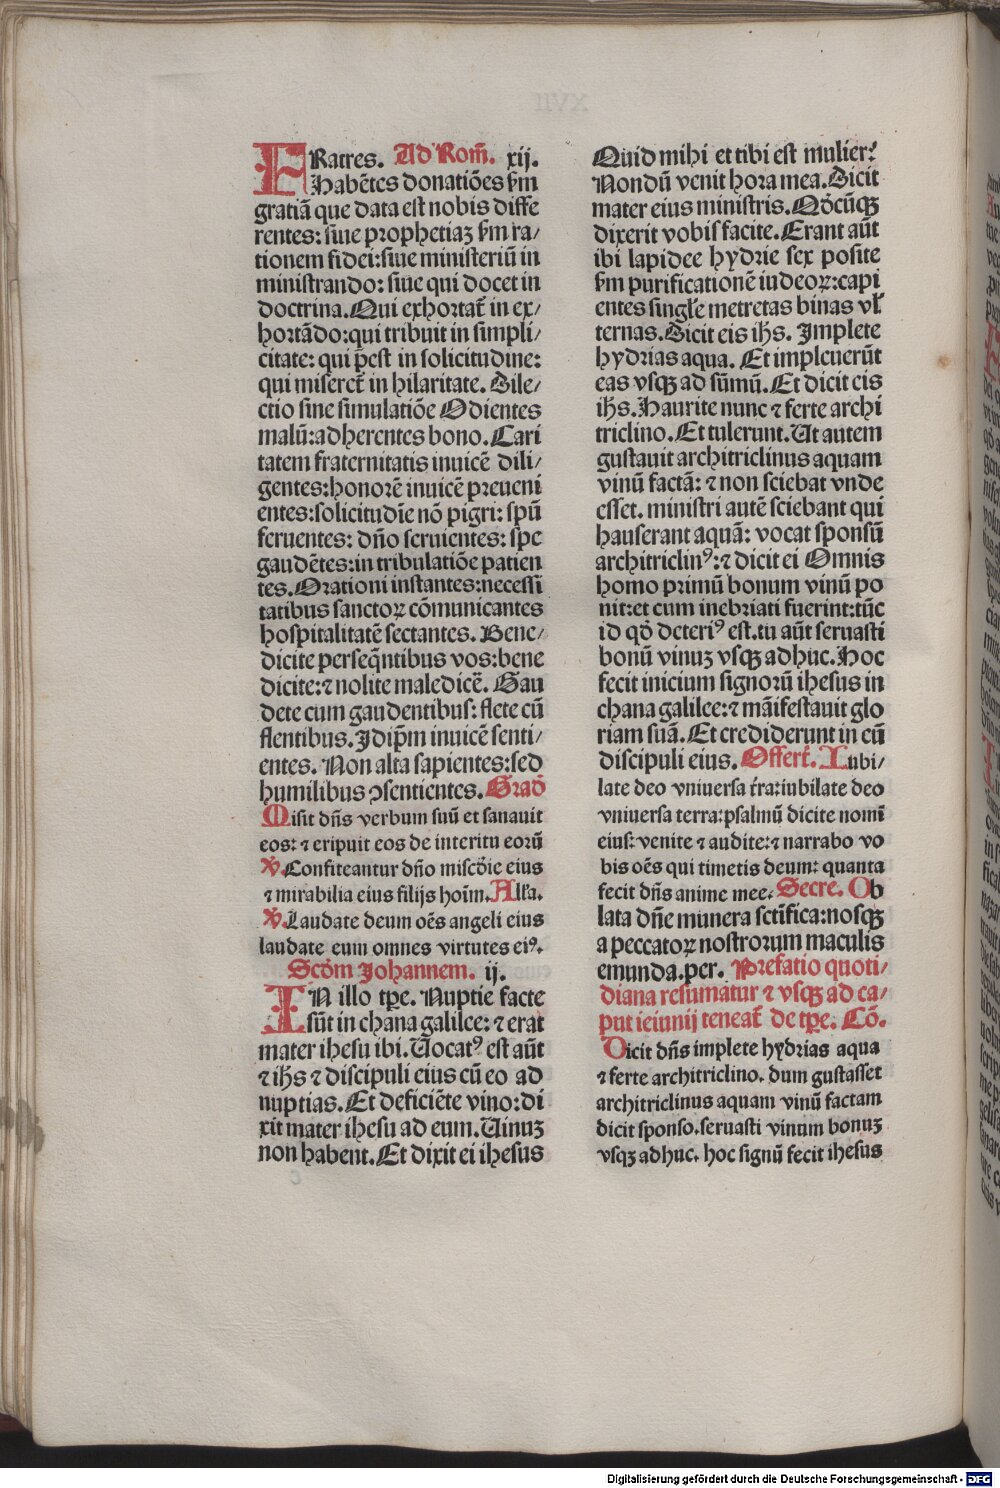 FRatres. Ad Rom̃. xij.
Habẽtes donatiões ẜm
gratiã que data est nobis diffe
rentes: siue prophetiaʒ ẜm ra/
tionem fidei: siue ministeriũ in
ministrando: siue qui docet in
doctrina. Qui exhortat̃ in ex/
hortãdo: qui tribuit in simpli/
citate: qui p̃est in solicitudine:
qui miseret̃ in hilaritate. Dile/
ctio sine simulatiõe Odientes
malũ: adherentes bono. Cari
tatem fraternitatis inuicẽ dili/
gentes: honorẽ inuicẽ preueni
entes: solicitudĩe nõ pigri: spũ
feruentes: dño seruientes: spe
gaudẽtes: in tribulatiõe patien
tes. Orationi instantes: necessi
tatibus sanctoꝝ cõmunicantes
hospitalitatẽ sectantes. Bene/
dicite perseq̃ntibus vos: bene
dicite: ⁊ nolite maledicẽ. Gau
dete cum gaudentibus: flete cũ
flentibus. Idip̃m inuicẽ senti/
entes. Non alta sapientes: sed
humilibus ꝯsentientes. Gradõ
Misit dñs verbum suũ et sanauit
eos: ⁊ eripuit eos de interitu eorũ
℣. Confiteantur dño miscõie eius
⁊ mirabilia eius filijs hoĩm. All'a.
℣. Laudate deum oẽs angeli eius
laudate eum omnes virtutes eiꝰ.
Scõm Johannem. ij.
IN illo tp̃e. Nuptie facte
sũt in chana galilee: ⁊ erat
mater ihesu ibi. Uocatꝰ est aũt
⁊ ihs̃ ⁊ discipuli eius cũ eo ad
nuptias. Et deficiẽte vino: di
xit mater ihesu ad eum. Uinuʒ
non habent. Et dixit ei ihesus
Quid mihi et tibi est mulier?
Nondũ venit hora mea. Dicit
mater eius ministris. Qõcũqʒ
dixerit vobis facite. Erant aũt
ibi lapidee hydrie sex posite
ẜm purificationẽ iudeoꝝ: capi
entes singl'e metretas binas vl'
ternas. Dicit eis ihs̃. Implete
hydrias aqua. Et impleuerũt
eas vsqʒ ad sũmũ. Et dicit eis
ihs̃. Haurite nunc ⁊ ferte archi
triclino. Et tulerunt. Ut autem
gustauit architriclinus aquam
vinũ factã: ⁊ non sciebat vnde
esset. ministri autẽ sciebant qui
hauserant aquã: vocat sponsũ
architriclinꝰ: ⁊ dicit ei Omnis
homo primũ bonum vinũ po
nit: et cum inebriati fuerint: tũc
id qõ deteriꝰ est. tu aũt seruasti
bonũ vinuʒ vsqʒ adhuc. Hoc
fecit inicium signorũ ihesus in
chana galilee: ⁊ mãifestauit glo
riam suã. Et crediderunt in eũ
discipuli eius. Offert̃. Iubi/
late deo vniuersa t̃ra: iubilate deo
vniuersa terra: psalmũ dicite nomĩ
eius: venite ⁊ audite: ⁊ narrabo vo
bis oẽs qui timetis deum: quanta
fecit dñs anime mee. Secre. Ob
lata dñe munera sctĩfica: nosqʒ
a peccatoꝝ nostrorum maculis
emunda. per. Prefatio quoti/
diana resumatur ⁊ vsqʒ ad ca/
put ieiunij teneat̃ de tp̃e. Cõ.
Dicit dñs implete hydrias aqua
⁊ ferte architriclino. dum gustasset
architriclinus aquam vinũ factam
dicit sponso. seruasti vinum bonuʒ
vsqʒ adhuc. hoc signũ fecit ihesus
Digitalisierung gefördert durch die Deutsche Forschungsgemeinschaft - DFG